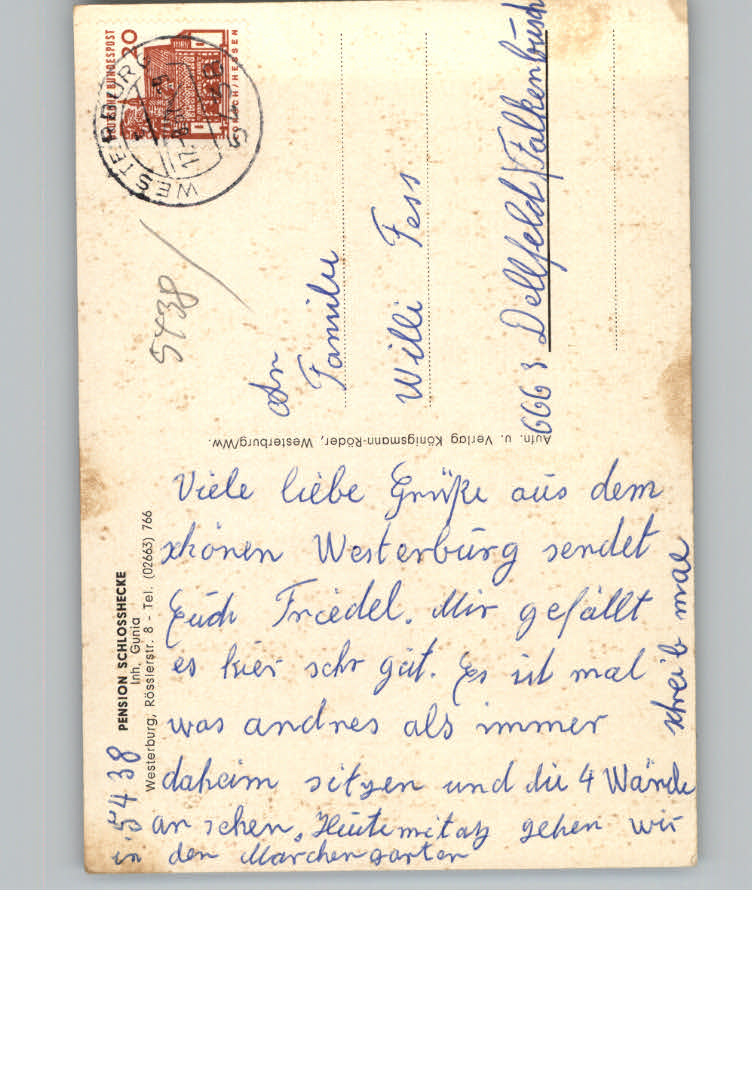 DEUTSCHE BUNDESPOST
20
LORSCH/HESSEN
WESTERBURG
5438
5438
An
Familie
Willi Fess
6663 Dellfeld/Falkenbusch
Aufn. u. Verlag Königsmann-Röder, Westerburg/Ww.
PENSION SCHLOSSHECKE
Inh. Gunia
Westerburg, Rösslerstr. 8 - Tel. (02663) 766
5438
Viele liebe Grüße aus dem
schönen Westerburg sendet
Euch Friedel. Mir gefällt
es hier sehr gut. Es ist mal
was andres als immer
daheim sitzen und die 4 Wände
an sehen. Heute mitag gehen wir
in den Märchengarten
schreib mal